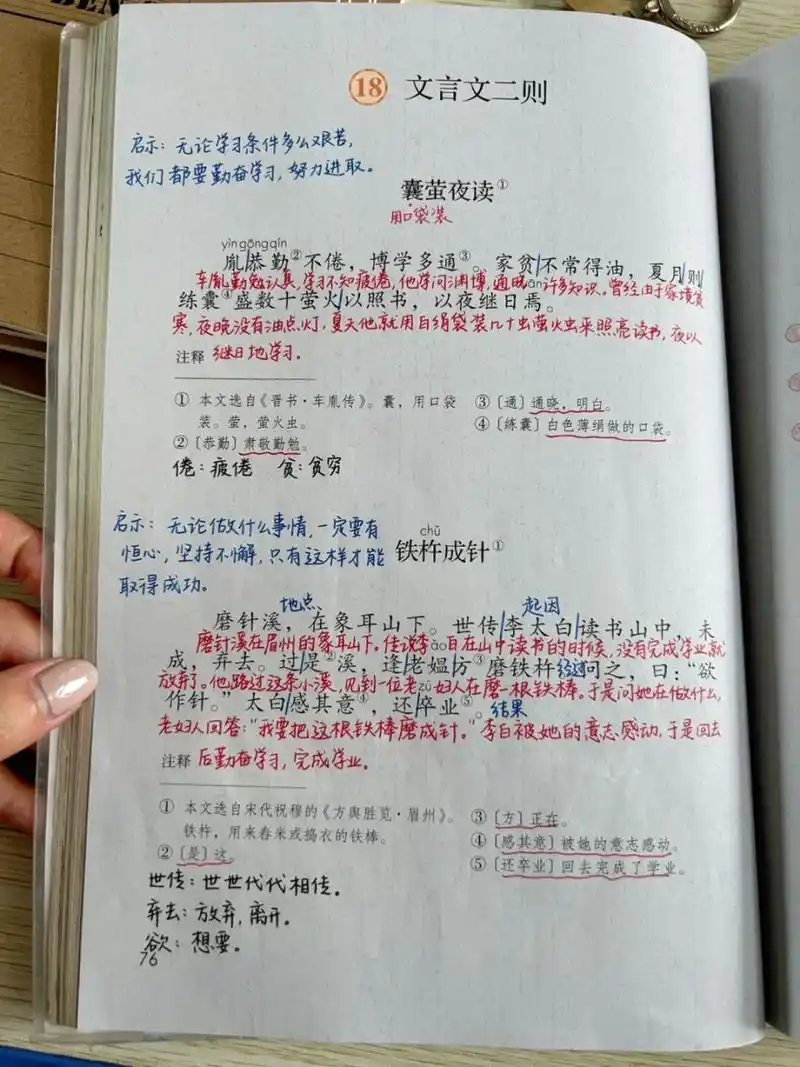 18 文言文二则
启示：无论学习条件多么艰苦，
我们都要勤奋学习，努力进取。
囊萤夜读①
用口袋装
yìn gōng qín
胤恭勤②不倦，博学多通③。家贫/不常得油，夏月/则/
车胤勤勉认真，学习不知疲倦，他学问渊博，通晓许多知识。曾经由于家境贫
练囊④盛数十萤火/以照书，以夜继日焉。
寒，夜晚没有油点灯，夏天他就用白绢袋装几十虫萤火虫来照亮读书，夜以
注释 继日地学习。
① 本文选自《晋书·车胤传》。囊，用口袋
装。萤，萤火虫。
②〔恭勤〕肃敬勤勉。
③〔通〕通晓，明白。
④〔练囊〕白色薄绢做的口袋。
倦：疲倦 贫：贫穷
启示：无论做什么事情，一定要有
恒心，坚持不懈，只有这样才能
取得成功。
chǔ
铁杵成针①
地点 起因
磨针溪，在象耳山下。世传/李太白/读书山中，未
磨针溪在眉州的象耳山下。传说李白在山中读书的时候，没有完成学业就
成，弃去。过/是②溪，逢/老媪方③磨铁杵 经过 问之，曰：“欲
放弃了。他路过这条小溪，见到一位老妇人在磨一根铁棒。于是问她在做什么，
作针。”太白/感其意④，还/卒业⑤。结果
老妇人回答：“我要把这根铁棒磨成针。”李白被她的意志感动，于是回去
注释 后勤奋学习，完成学业。
① 本文选自宋代祝穆的《方舆胜览·眉州》。
铁杵，用来舂米或捣衣的铁棒。
②〔是〕这。
③〔方〕正在。
④〔感其意〕被她的意志感动。
⑤〔还卒业〕回去完成了学业。
世传：世世代代相传。
弃去：放弃，离开。
欲：想要。
76